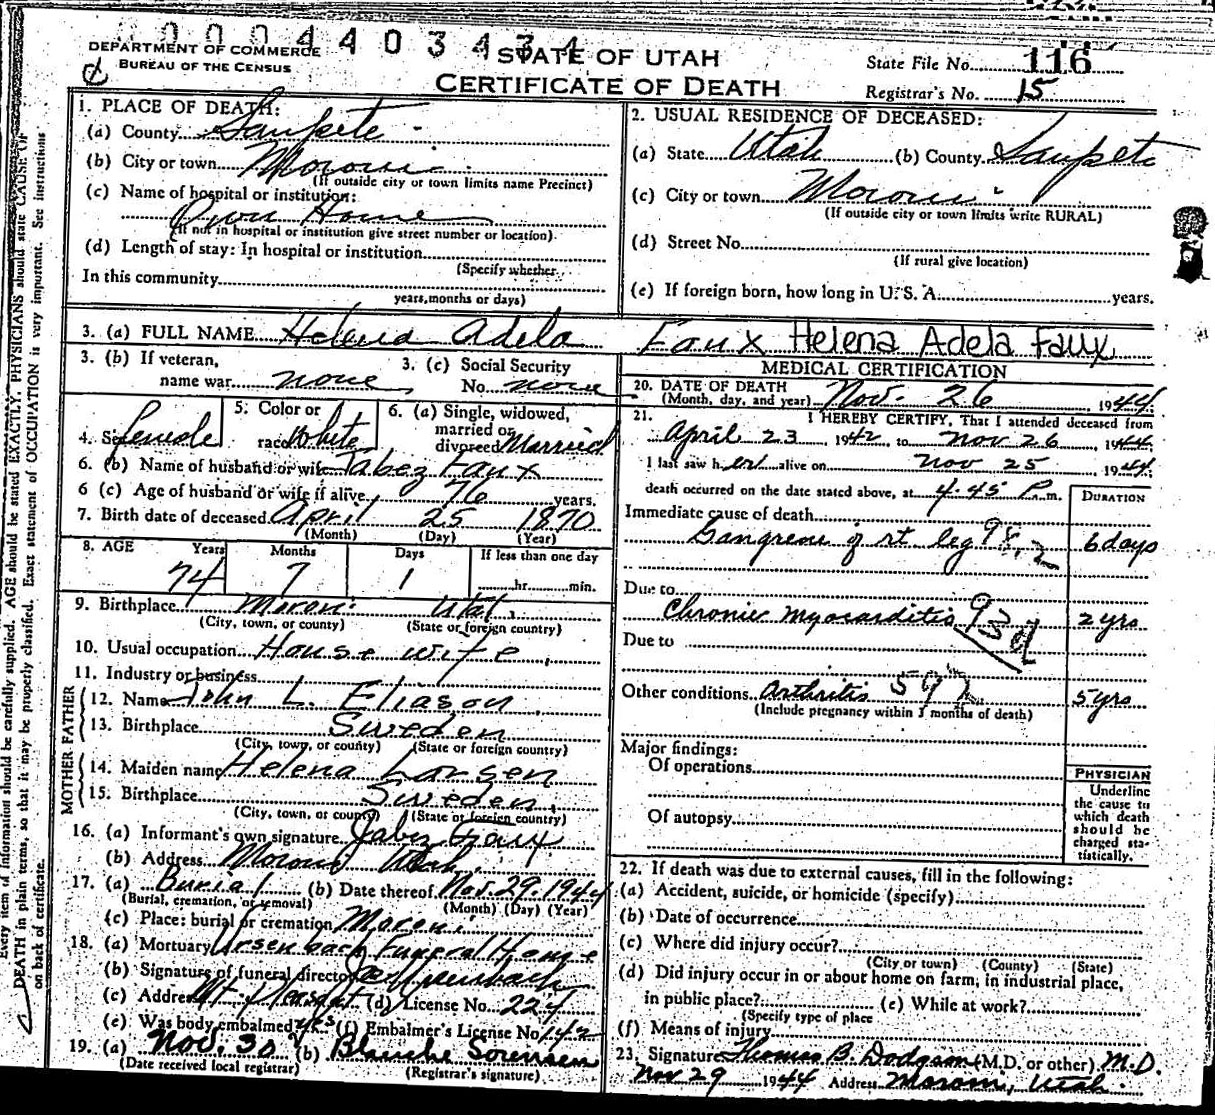 0000440 3434
DEPARTMENT OF COMMERCE
BUREAU OF THE CENSUS
STATE OF UTAH
CERTIFICATE OF DEATH
State File No. 116
Registrar's No. 15
1. PLACE OF DEATH:
(a) County Sanpete
(b) City or town Moroni
(If outside city or town limits name Precinct)
(c) Name of hospital or institution:
Own Home
(If not in hospital or institution give street number or location)
(d) Length of stay: In hospital or institution
(Specify whether
In this community
years, months or days)
2. USUAL RESIDENCE OF DECEASED:
(a) State Utah (b) County Sanpete
(c) City or town Moroni
(If outside city or town limits write RURAL)
(d) Street No.
(If rural give location)
(e) If foreign born, how long in U. S. A. years.
3. (a) FULL NAME Helena Adela Faux Helena Adela Faux
3. (b) If veteran, name war none
3. (c) Social Security No. none
4. Sex female
5. Color or race White
6. (a) Single, widowed, married or divorced Married
6. (b) Name of husband or wife Jabez Faux
6 (c) Age of husband or wife if alive 76 years.
7. Birth date of deceased April 25 1870
(Month) (Day) (Year)
8. AGE Years Months Days If less than one day
74 7 1 hr. min.
9. Birthplace Moroni Utah
(City, town, or county) (State or foreign country)
10. Usual occupation House wife
11. Industry or business
FATHER
12. Name John L. Eliason
13. Birthplace Sweden
(City, town, or county) (State or foreign country)
MOTHER
14. Maiden name Helena Larsen
15. Birthplace Sweden
(City, town, or county) (State or foreign country)
16. (a) Informant's own signature Jabez Faux
(b) Address Moroni Utah
17. (a) Burial (b) Date thereof Nov. 29. 1944
(Burial, cremation, or removal) (Month) (Day) (Year)
(c) Place: burial or cremation Moroni
18. (a) Mortuary Ursenbach Funeral Home
(b) Signature of funeral director Ursenbach
(c) Address Mt. Pleasant (d) License No. 224
(e) Was body embalmed yes (f) Embalmer's License No. 142
19. (a) Nov. 30 (b) Blanche Sorensen
(Date received local registrar) (Registrar's signature)
MEDICAL CERTIFICATION
20. DATE OF DEATH
(Month, day, and year) Nov. 26 1944
21. I HEREBY CERTIFY, That I attended deceased from
April 23, 1942, to Nov 26, 1944
I last saw her alive on Nov 25, 1944
death occurred on the date stated above, at 4.45 P.m.
DURATION
Immediate cause of death
Gangrene of rt leg 98.2 6 days
Due to
Chronic myocarditis 93d 2 yrs
Due to
Other conditions Arthritis 59 5 yrs
(Include pregnancy within 3 months of death)
Major findings:
Of operations
Of autopsy
PHYSICIAN
Underline
the cause to
which death
should be
charged sta-
tistically.
22. If death was due to external causes, fill in the following:
(a) Accident, suicide, or homicide (specify)
(b) Date of occurrence
(c) Where did injury occur?
(City or town) (County) (State)
(d) Did injury occur in or about home on farm, in industrial place,
in public place? (e) While at work?
(Specify type of place
(f) Means of injury
23. Signature Thomas B. Dodgson (M.D. or other) M.D.
Nov 29 1944 Address Moroni, Utah.
Every item of information should be carefully supplied. AGE should be stated EXACTLY. PHYSICIANS should state CAUSE OF
DEATH in plain terms, so that it may be properly classified. Exact statement of OCCUPATION is very important. See instructions
on back of certificate.